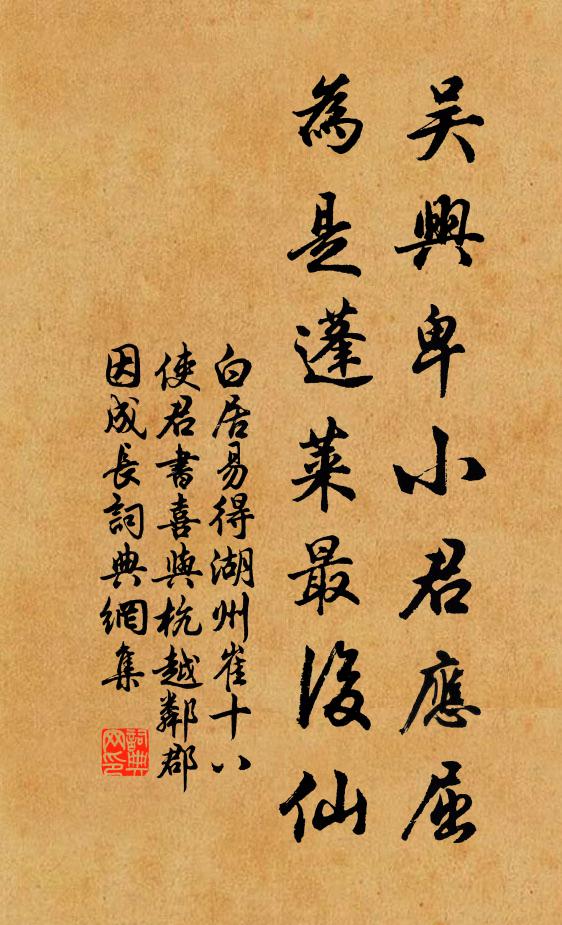 吴興卑小君應屈
為是蓬萊最後仙
白居易得湖州崔十八
使君書喜與杭越鄰郡
因成長詞典網集
詞典网印